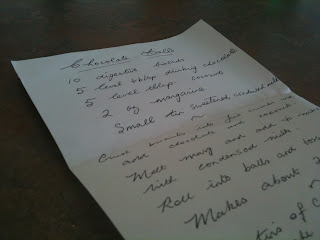 Chocolate Balls
10 digestive biscuits
5 level tblsp drinking chocolate
5 level tblsp coconut
2 oz margarine
Small tin sweetened condensed milk
Crush biscuits into fine
and chocolate and coconut
Melt marg and add to
with condensed milk.
Roll into balls and
Makes about
tins of